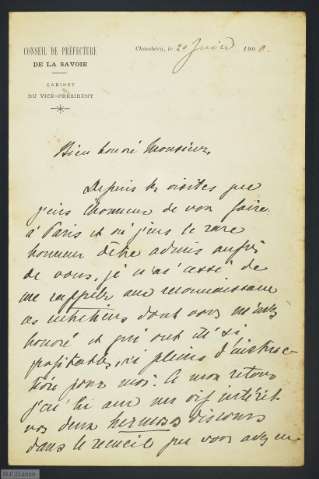 CONSEIL DE PRÉFECTURE
DE LA SAVOIE
CABINET
DU VICE-PRÉSIDENT
Chambéry, le 20 190
Bien honoré Monsieur,
Depuis les visites que
j'eus l'honneur de vous faire
à Paris et où j'eus le rare
honneur d'être admis auprès
de vous, je n'ai cessé de
me rappeler avec reconnaissance
ces entretiens dont vous m'avez
honoré et qui ont été si
profitables, si pleins d'instruc-
tion pour moi. A mon retour
j'ai lu avec un vif intérêt
vos deux discours
dans le recueil que vous avez